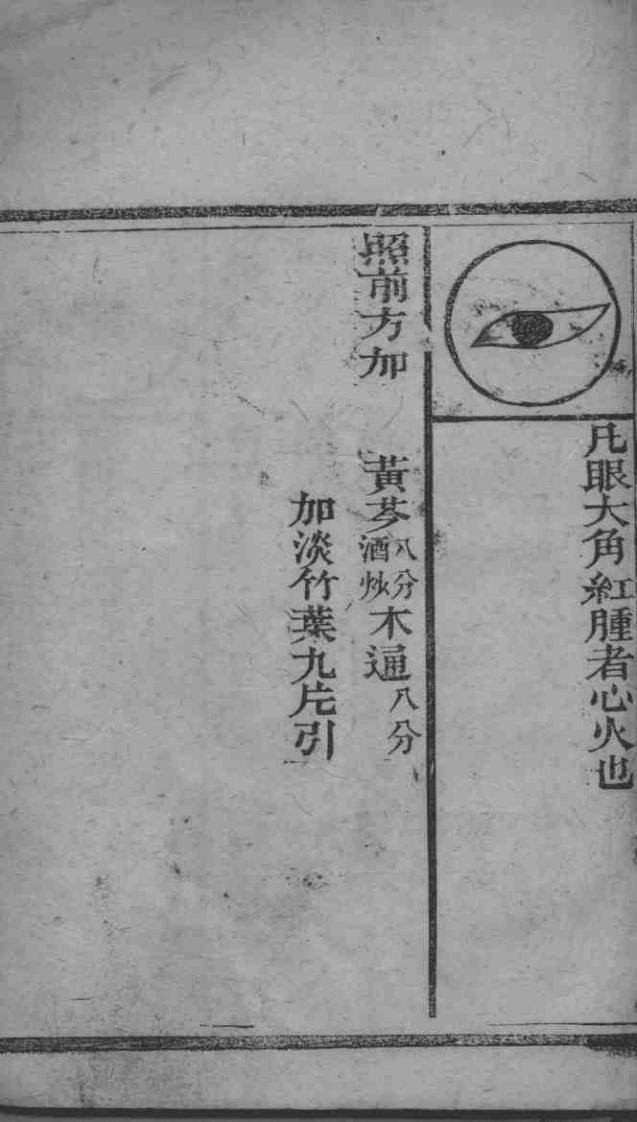 凡眼大角紅腫者心火也
照前方加 黃芩八分酒炒木通八分
加淡竹葉九片引